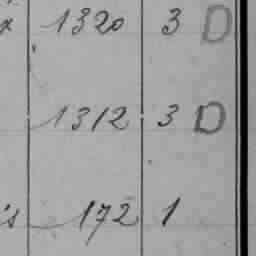 1320 3 D
1312 3 D
is 172 1